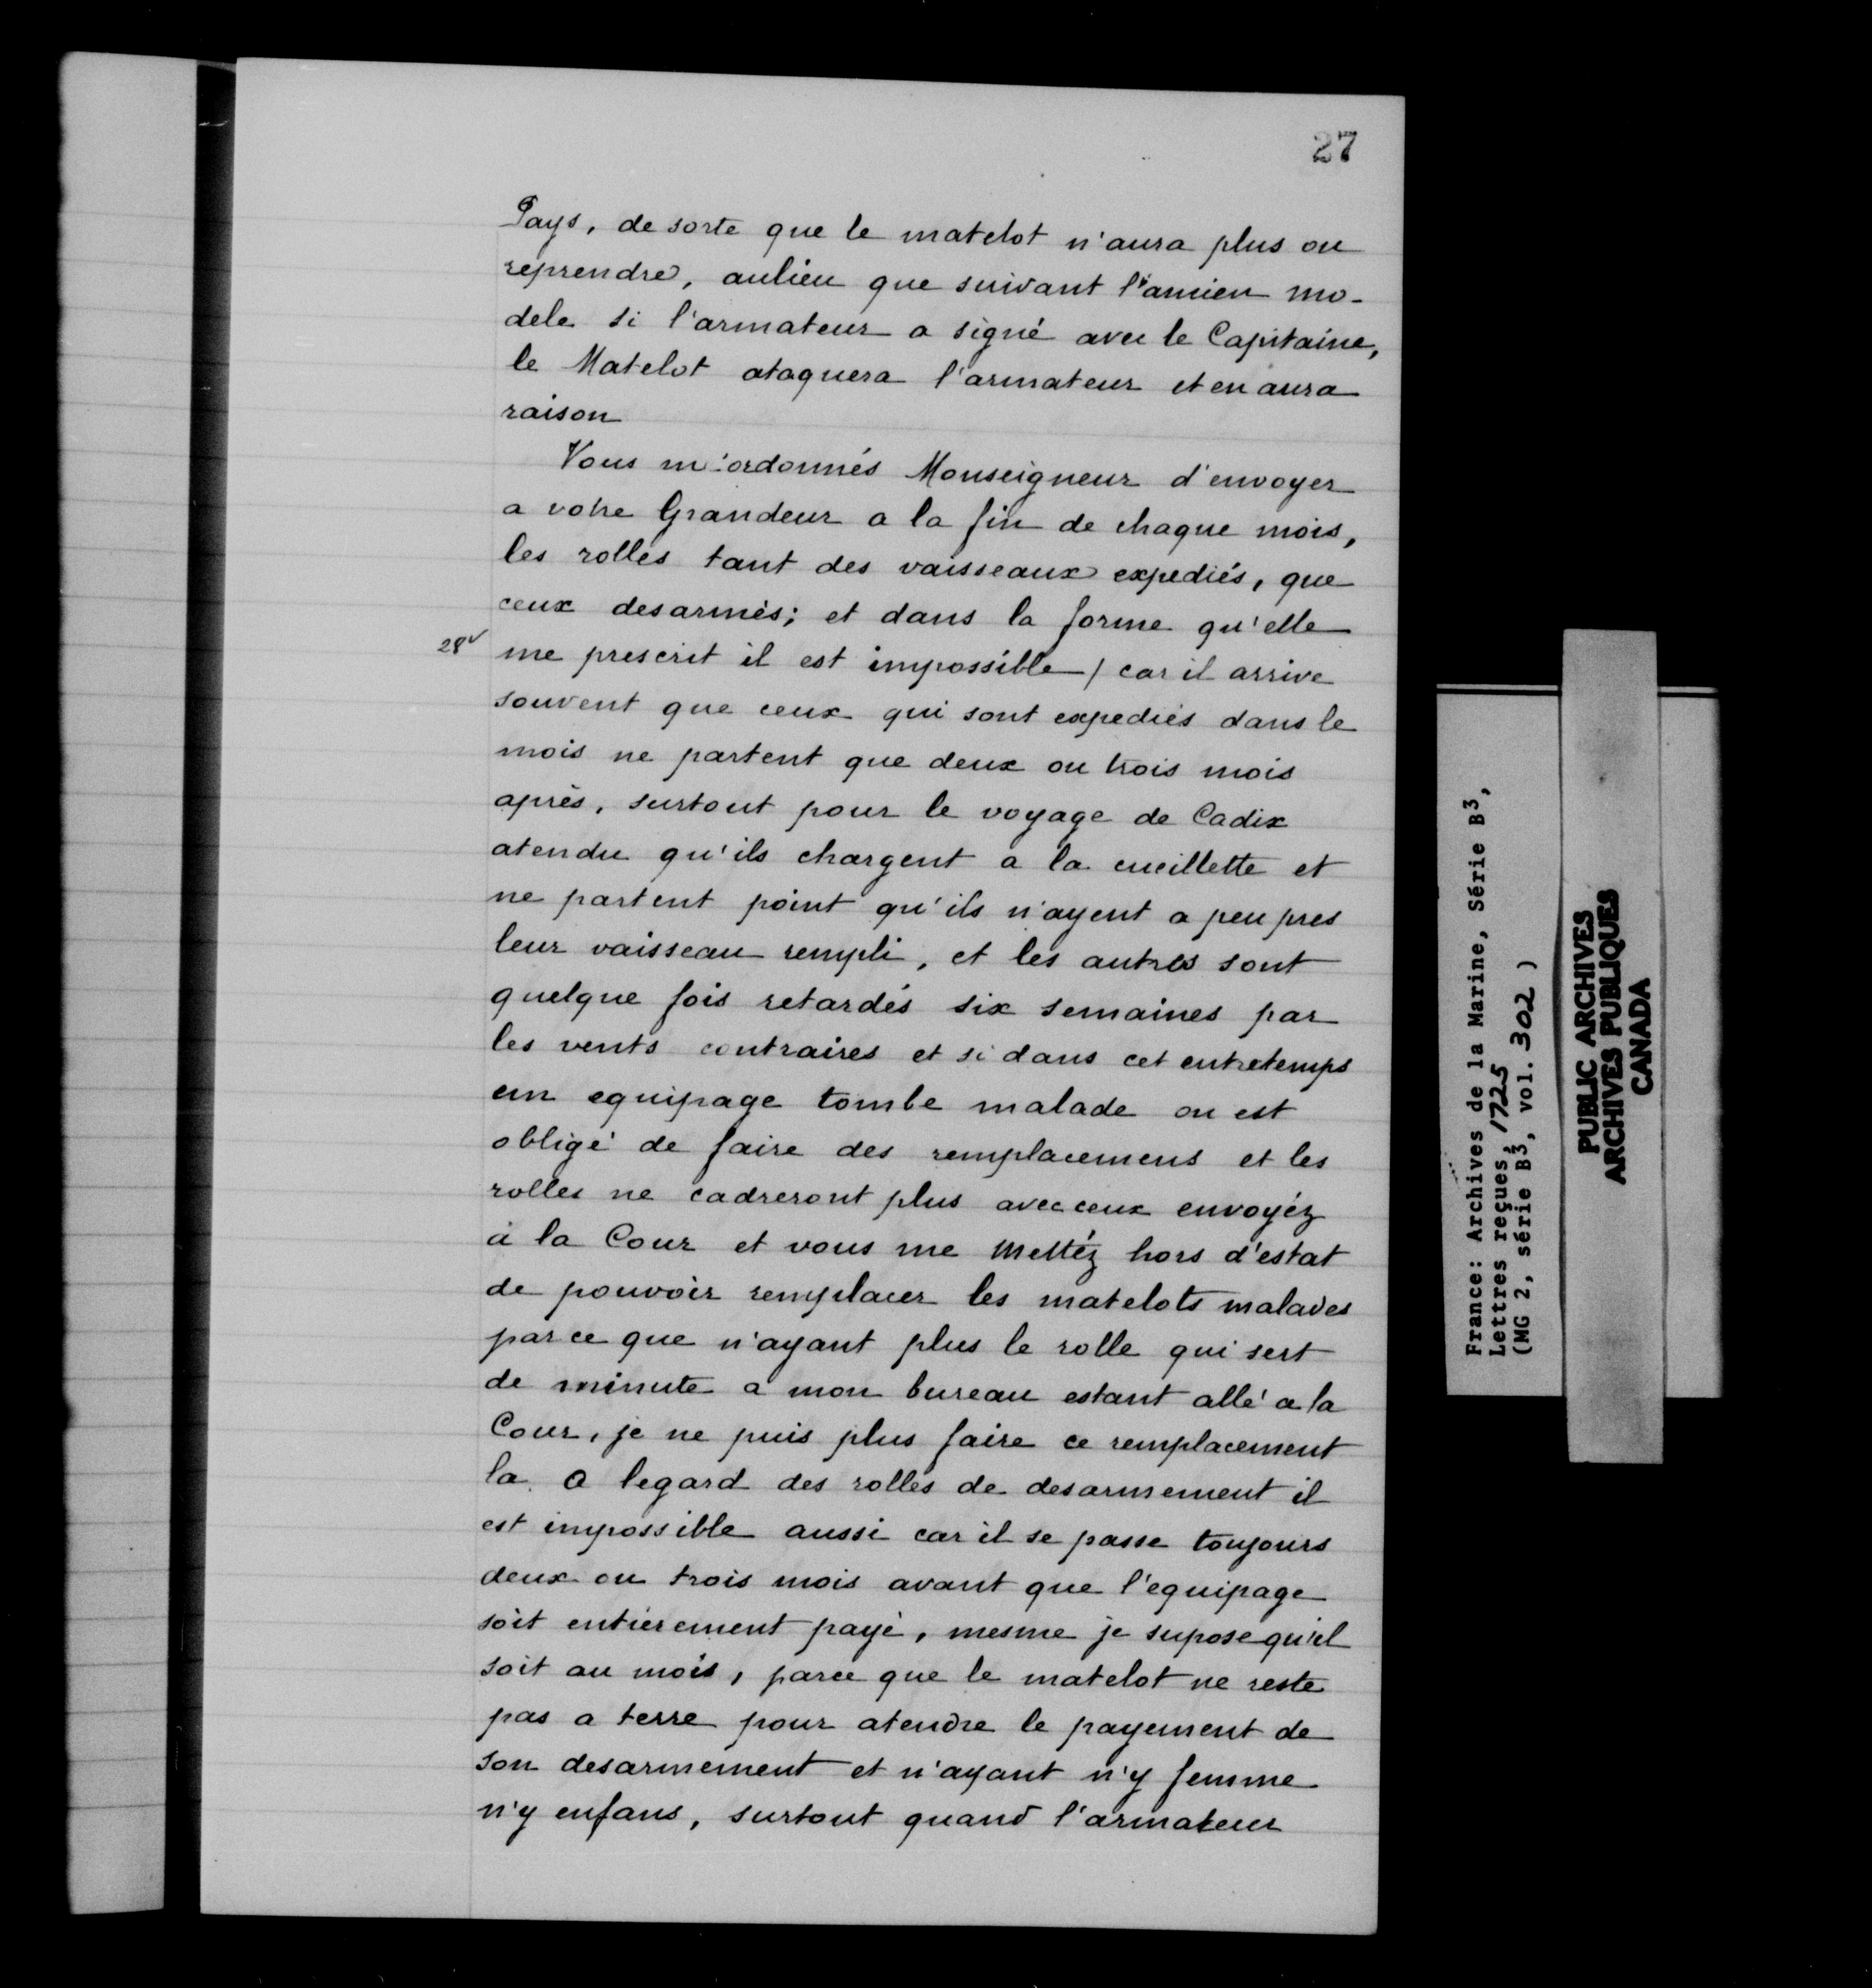 27
Pays, de sorte que le matelot n'aura plus ou
reprendre, aulieu que suivant l'ancien mo-
dele si l'armateur a signé avec le Capitaine,
le Matelot ataquera l'armateur et en aura
raison
Vous m'ordonnés Monseigneur d'envoyer
a votre Grandeur a la fin de chaque mois,
les rolles tant des vaisseaux expediés, que
ceux desarmés; et dans la forme qu'elle
28v me prescrit il est impossible / car il arrive
souvent que ceux qui sont expediés dans le
mois ne partent que deux ou trois mois
après, surtout pour le voyage de Cadix
atendu qu'ils chargent a la cueillette et
ne partent point qu'ils n'ayent a peu pres
leur vaisseau rempli, et les autres sont
quelque fois retardés six semaines par
les vents contraires et si dans cet entretemps
un equipage tombe malade on est
obligé de faire des remplacemens et les
rolles ne cadreront plus avec ceux envoyéz
à la Cour et vous me mettéz hors d'estat
de pouvoir remplacer les matelots malades
par ce que n'ayant plus le rolle qui sert
de minute a mon bureau estant allé a la
Cour, je ne puis plus faire ce remplacement
la. A legard des rolles de desarmement il
est impossible aussi car il se passe toujours
deux ou trois mois avant que l'equipage
soit entièrement payé, mesme je supose qu'il
soit au mois, parce que le matelot ne reste
pas a terre pour atendre le payement de
son desarmement et n'ayant n'y femme
n'y enfans, surtout quand l'armateur
France: Archives de la Marine, Série B3,
Lettres reçues, 1725
(MG 2, série B3, vol. 302)
PUBLIC ARCHIVES
ARCHIVES PUBLIQUES
CANADA